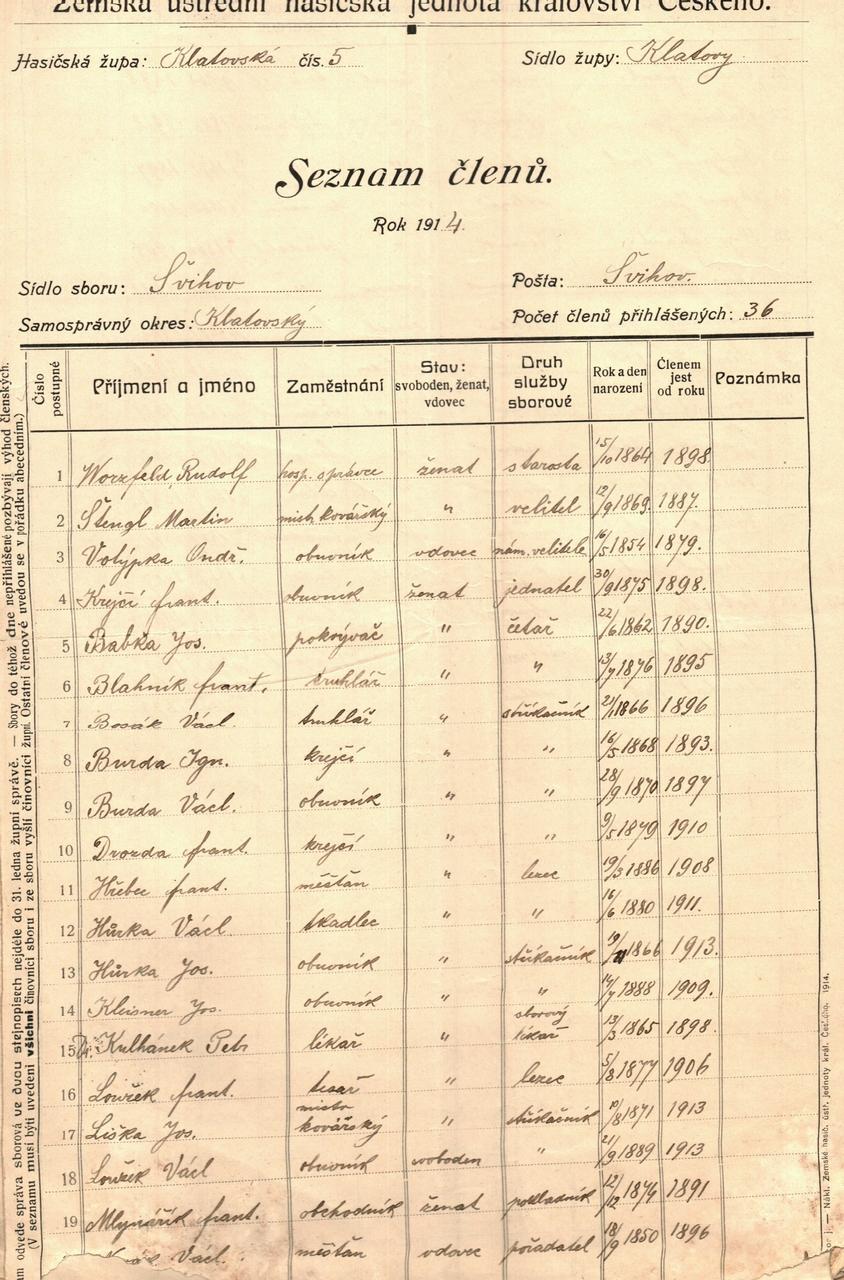 Zemská ústřední hasičská jednota království Českého.
Hasičská župa: Klatovská čís. 5 Sídlo župy: Klatovy
Seznam členů.
Rok 1914.
Sídlo sboru: Švihov Pošta: Švihov.
Samosprávný okres: Klatovský Počet členů přihlášených: 36
Číslo postupné Příjmení a jméno Zaměstnání Stav: svoboden, ženat, vdovec Druh služby sborové Rok a den narození Členem jest od roku Poznámka
1 Worzfeld Rudolf hosp. správce ženat starosta 15/10 1864 1898
2 Štengl Martin mistr kovářský " velitel 12/9 1869. 1887.
3 Votýpka Ondř. obuvník vdovec nám. velitele 16/5 1854 1879.
4 Krejčí frant. obuvník ženat jednatel 30/9 1875 1898.
5 Babka Jos. pokrývač " četař 22/6 1862 1890.
6 Blahník frant. truhlář " " 13/7 1876 1895
7 Bosák Václ. truhlář " stříkačník 2/1 1866 1896
8 Burda Ign. krejčí " " 16/5 1868 1893.
9 Burda Václ. obuvník " " 28/9 1870 1897
10 Drozda frant. krejčí " " 9/5 1879 1910
11 Hřebec frant. měšťan " lezec 19/3 1886 1908
12 Hůrka Václ. tkadlec " " 16/6 1880 1911.
13 Hůrka Jos. obuvník " stříkačník 19/11 1866 1913.
14 Kleisner Jos. obuvník " " 14/7 1888 1909.
15 Kulhánek Petr lékař " sborový lékař 13/3 1865 1898.
16 Loužek frant. tesař " lezec 5/8 1877 1906
17 Liška Jos. mistr kovářský " stříkačník 10/8 1871 1913
18 Loužek Václ obuvník svoboden " 21/9 1889 1913
19 Mlynářík frant. obchodník ženat pokladník 12/12 1874 1891
Václ. měšťan vdovec pořadatel 18/9 1850 1896
odvede správa sborová ve dvou stejnopisech nejdéle do 31. ledna župní správě. — Sbory do téhož dne nepřihlášené pozbývají výhod členských.
(V seznamu musí býti uvedeni všichni činovníci sboru i ze sboru vyšlí činovníci župní. Ostatní členové uvedou se v pořádku abecedním.)
— Nákl. Zemské hasič. ústř. jednoty král. Česk. 1914.